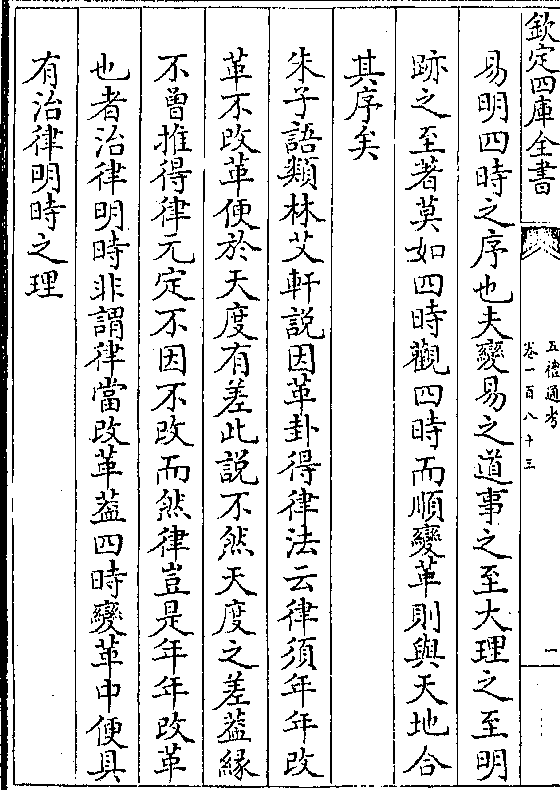 欽定四庫全書
五禮通考
卷一百八十三
一
易明四時之序也夫變易之道事之至大理之至明
跡之至著莫如四時觀四時而順變革則與天地合
其序矣
朱子語類林艾軒説因革卦得律法云律須年年改
革不改革便於天度有差此説不然天度之差葢緣
不曾推得律元定不因不改而然律豈是年年改革
也者治律明時非謂律當改革葢四時變革中便具
有治律明時之理